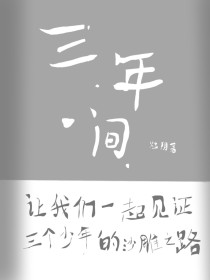 三年
间
让我们一起见证
三个少年的沙雕之路